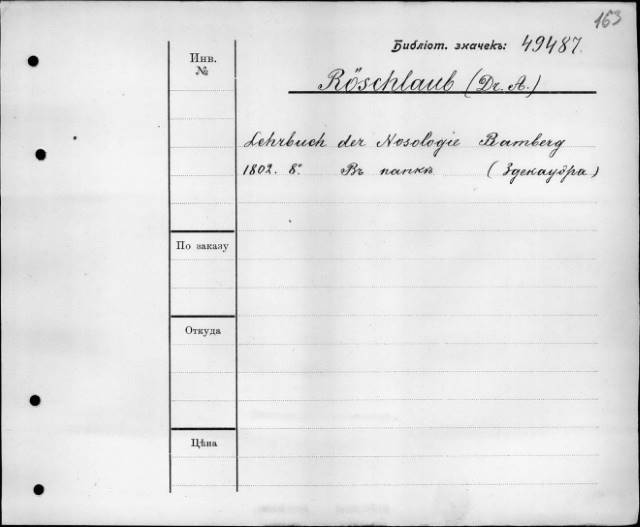 163
Библіот. значекъ: 49487.
Инв. №
Röschlaub (Dr. A.)
Lehrbuch der Nosologie Bamberg
1802. 8º. Въ папкѣ (Здекауэра)
По заказу
Откуда
Цѣна